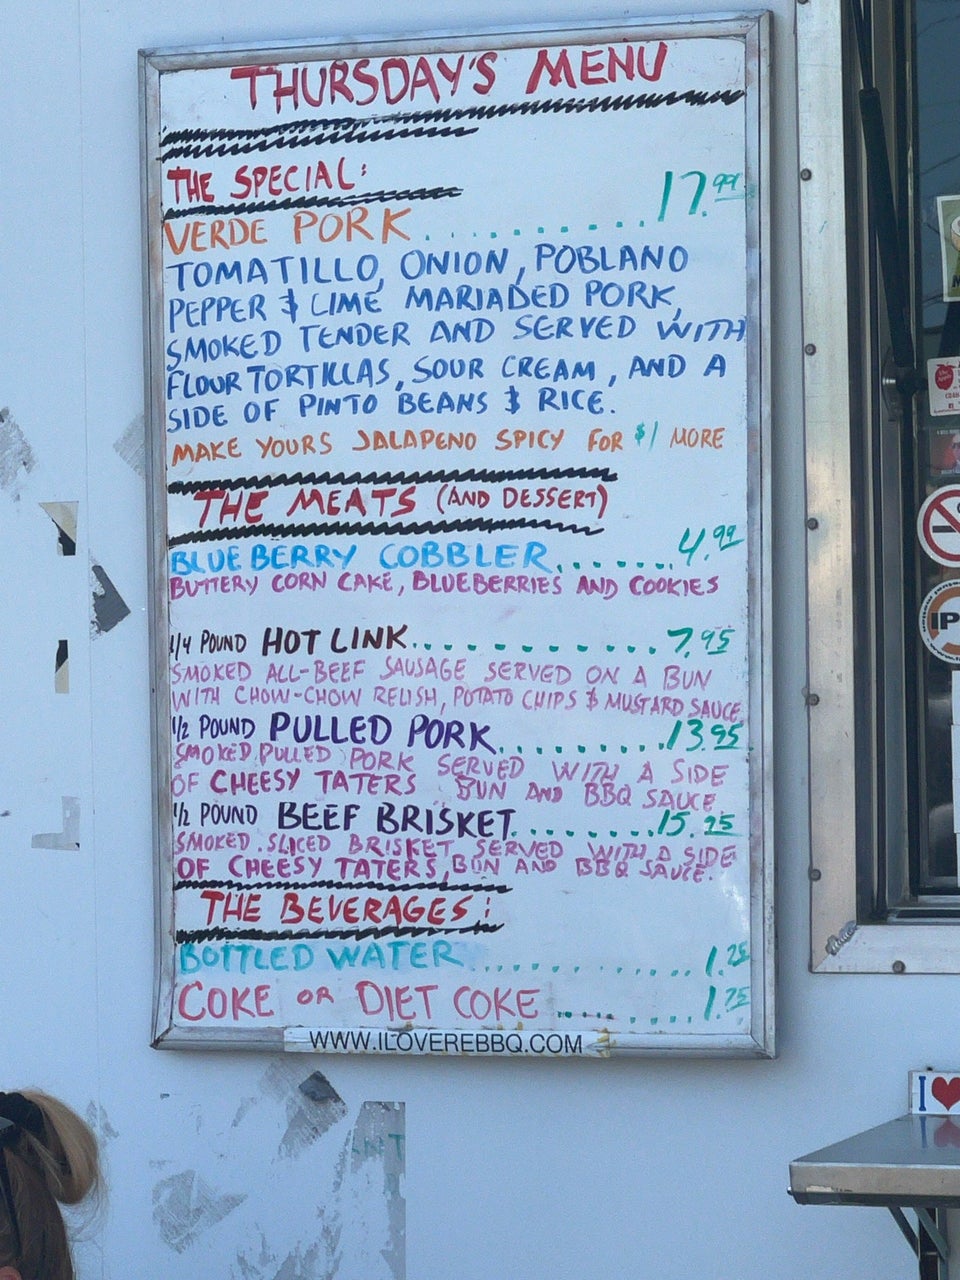 THURSDAY'S MENU
THE SPECIAL:
VERDE PORK.............17.99
TOMATILLO, ONION, POBLANO
PEPPER & LIME MARIADED PORK,
SMOKED TENDER AND SERVED WITH
FLOUR TORTILLAS, SOUR CREAM, AND A
SIDE OF PINTO BEANS & RICE.
MAKE YOURS JALAPENO SPICY FOR $1 MORE
THE MEATS (AND DESSERT)
BLUEBERRY COBBLER........4.99
BUTTERY CORN CAKE, BLUEBERRIES AND COOKIES
1/4 POUND HOT LINK..............7.95
SMOKED ALL-BEEF SAUSAGE SERVED ON A BUN
WITH CHOW-CHOW RELISH, POTATO CHIPS & MUSTARD SAUCE.
1/2 POUND PULLED PORK..........13.95
SMOKED, PULLED PORK SERVED WITH A SIDE
OF CHEESY TATERS BUN AND BBQ SAUCE
1/2 POUND BEEF BRISKET.........15.25
SMOKED, SLICED BRISKET SERVED WITH A SIDE
OF CHEESY TATERS, BUN AND BBQ SAUCE.
THE BEVERAGES:
BOTTLED WATER...............1.25
COKE OR DIET COKE..........1.75
WWW.ILOVEREBBQ.COM
I
IP